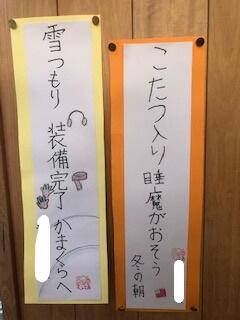 こたつ入り 睡魔がおそう 冬の朝
雪つもり 装備完了 かまくらへ